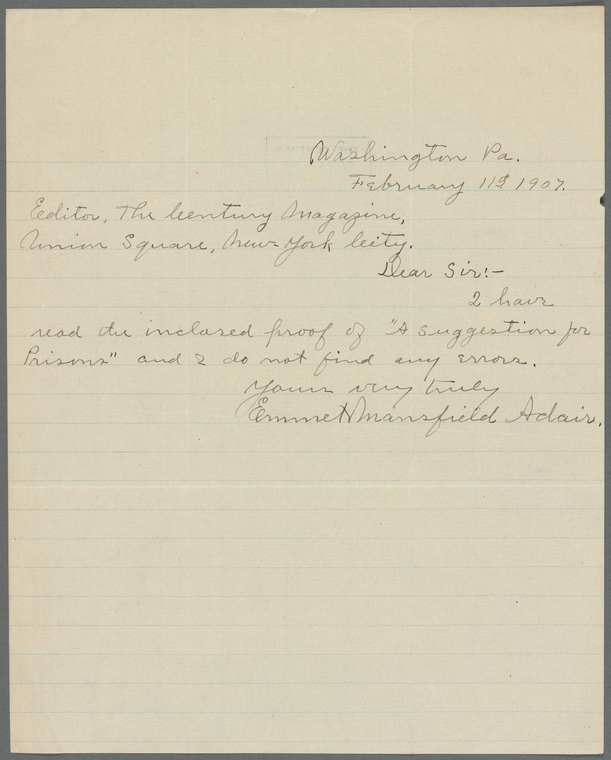 Washington Pa.
February 11th 1907.
Editor, The Century Magazine,
Union Square, New York City.
Dear Sir:-
I have
read the inclosed proof of "A Suggestion for
Prisons" and I do not find any errors.
Yours very truly
Emmett Mansfield Adair.